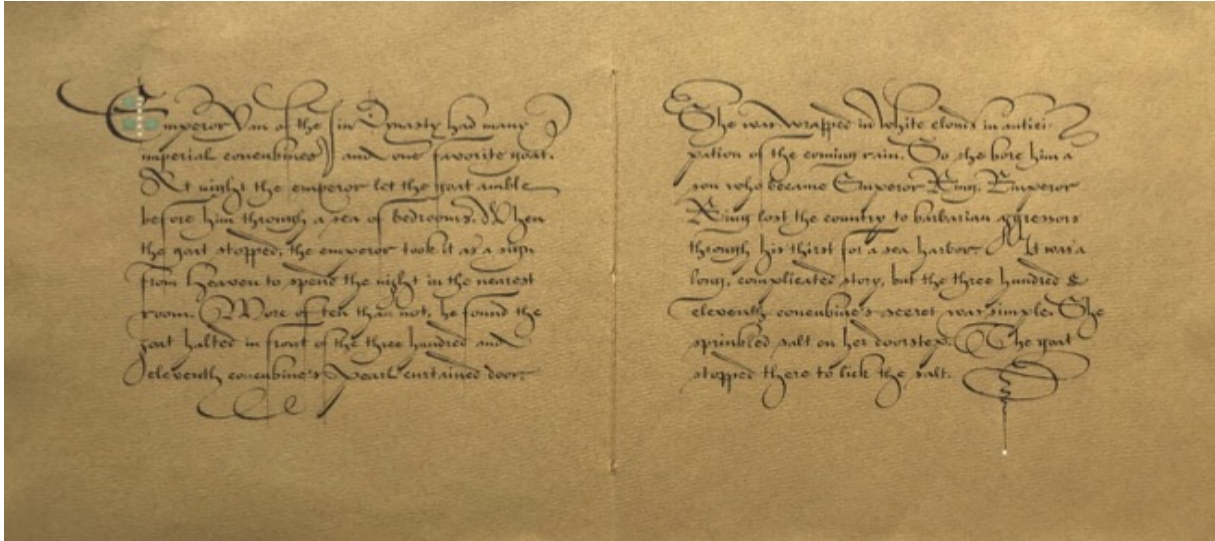 Emperor Van of the Jin Dynasty had many
imperial concubines and one favorite goat.
At night the emperor let the goat amble
before him through a sea of bedrooms. When
the goat stopped, the emperor took it as a sign
from Heaven to spend the night in the nearest
room. More often than not, he found the
goat halted in front of the three hundred and
eleventh concubine's pearl curtained door.
She was wrapped in white clouds in antici-
pation of the coming rain. So she bore him a
son who became Emperor Ring. Emperor
Ring lost the country to barbarian aggressors
through his thirst for a sea harbor. It was a
long, complicated story, but the three hundred &
eleventh concubine's secret was simple. She
sprinkled salt on her doorstep. The goat
stopped there to lick the salt.